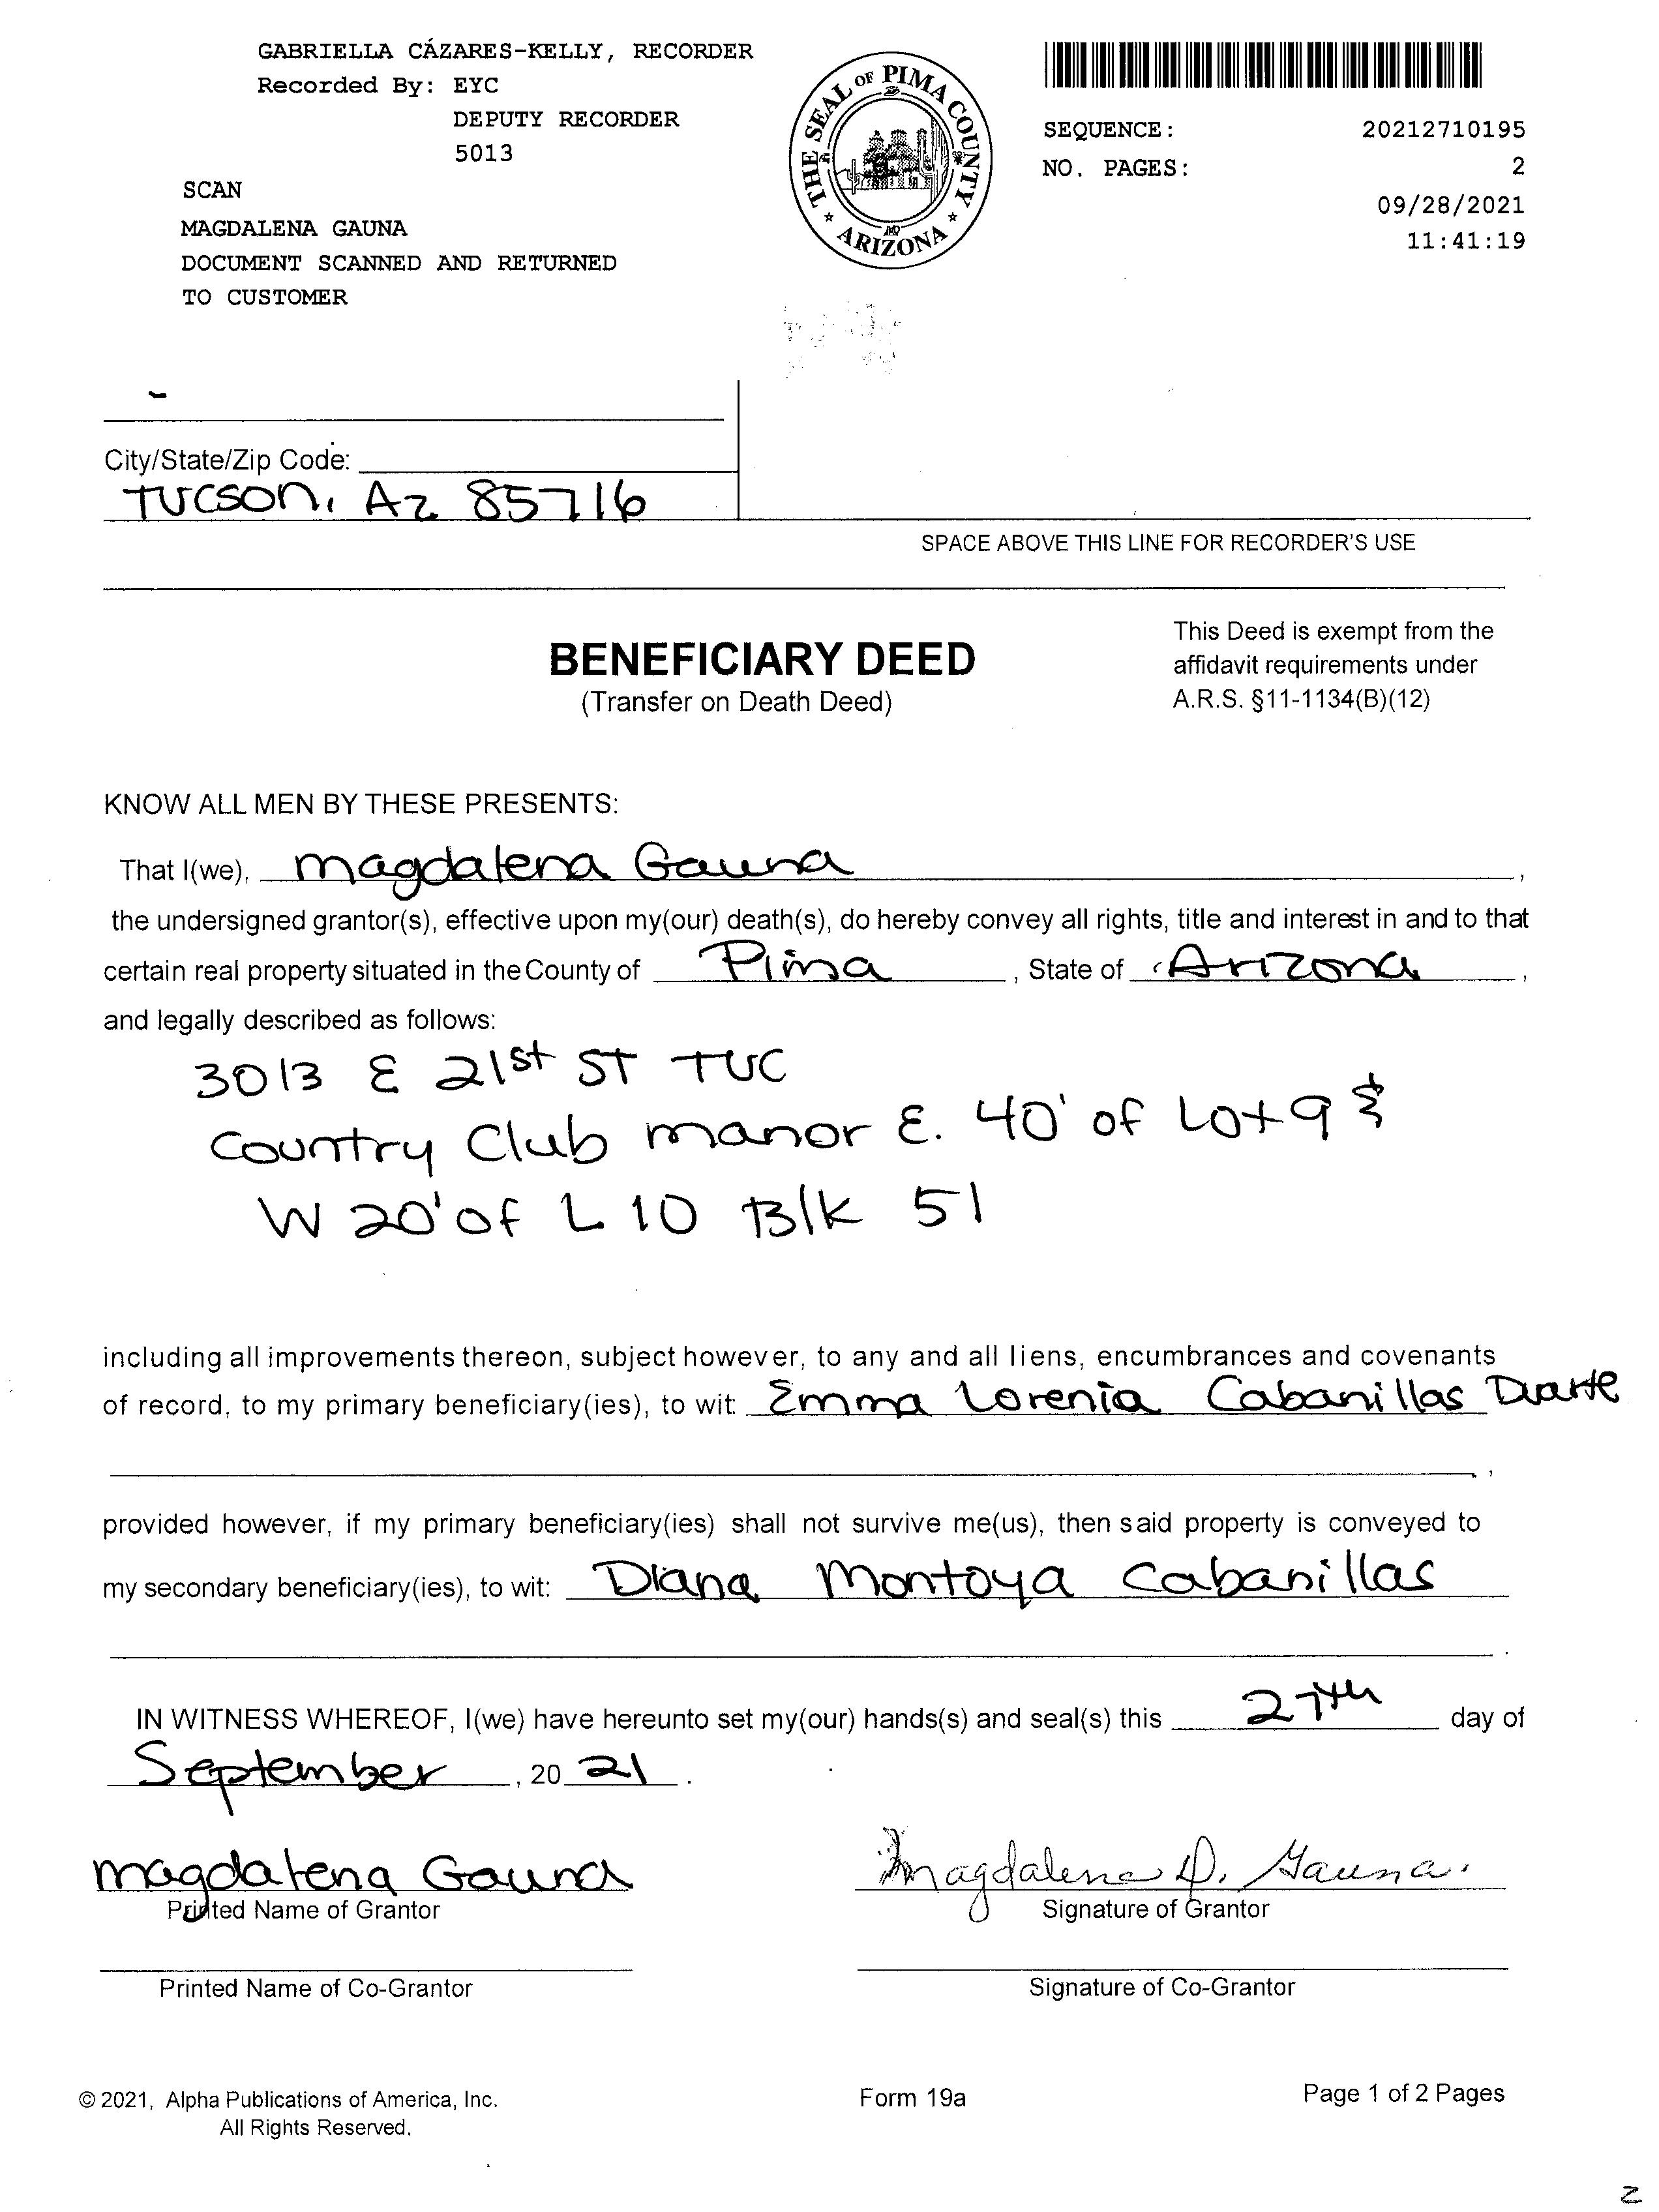 GABRIELLA CÁZARES-KELLY, RECORDER
Recorded By: EYC
DEPUTY RECORDER
5013
SCAN
MAGDALENA GAUNA
DOCUMENT SCANNED AND RETURNED
TO CUSTOMER
THE SEAL OF PIMA COUNTY
ARIZONA
SEQUENCE: 20212710195
NO. PAGES: 2
09/28/2021
11:41:19
City/State/Zip Code:
Tucson, Az 85716
SPACE ABOVE THIS LINE FOR RECORDER'S USE
BENEFICIARY DEED
(Transfer on Death Deed)
This Deed is exempt from the
affidavit requirements under
A.R.S. §11-1134(B)(12)
KNOW ALL MEN BY THESE PRESENTS:
That I(we), Magdalena Gauna,
the undersigned grantor(s), effective upon my(our) death(s), do hereby convey all rights, title and interest in and to that
certain real property situated in the County of Pima, State of Arizona,
and legally described as follows:
3013 E 21st ST TUC
Country Club manor E. 40' of Lot 9 &
W 20' of L 10 Blk 51
including all improvements thereon, subject however, to any and all liens, encumbrances and covenants
of record, to my primary beneficiary(ies), to wit: Emma Lorenia Cabanillas Duarte
,
provided however, if my primary beneficiary(ies) shall not survive me(us), then said property is conveyed to
my secondary beneficiary(ies), to wit: Diana Montoya Cabanillas
.
IN WITNESS WHEREOF, I(we) have hereunto set my(our) hands(s) and seal(s) this 27th day of
September, 20 21.
Magdalena Gauna
Magdalena D. Gauna.
Printed Name of Grantor
Signature of Grantor
Printed Name of Co-Grantor
Signature of Co-Grantor
© 2021, Alpha Publications of America, Inc.
All Rights Reserved.
Form 19a
Page 1 of 2 Pages
2